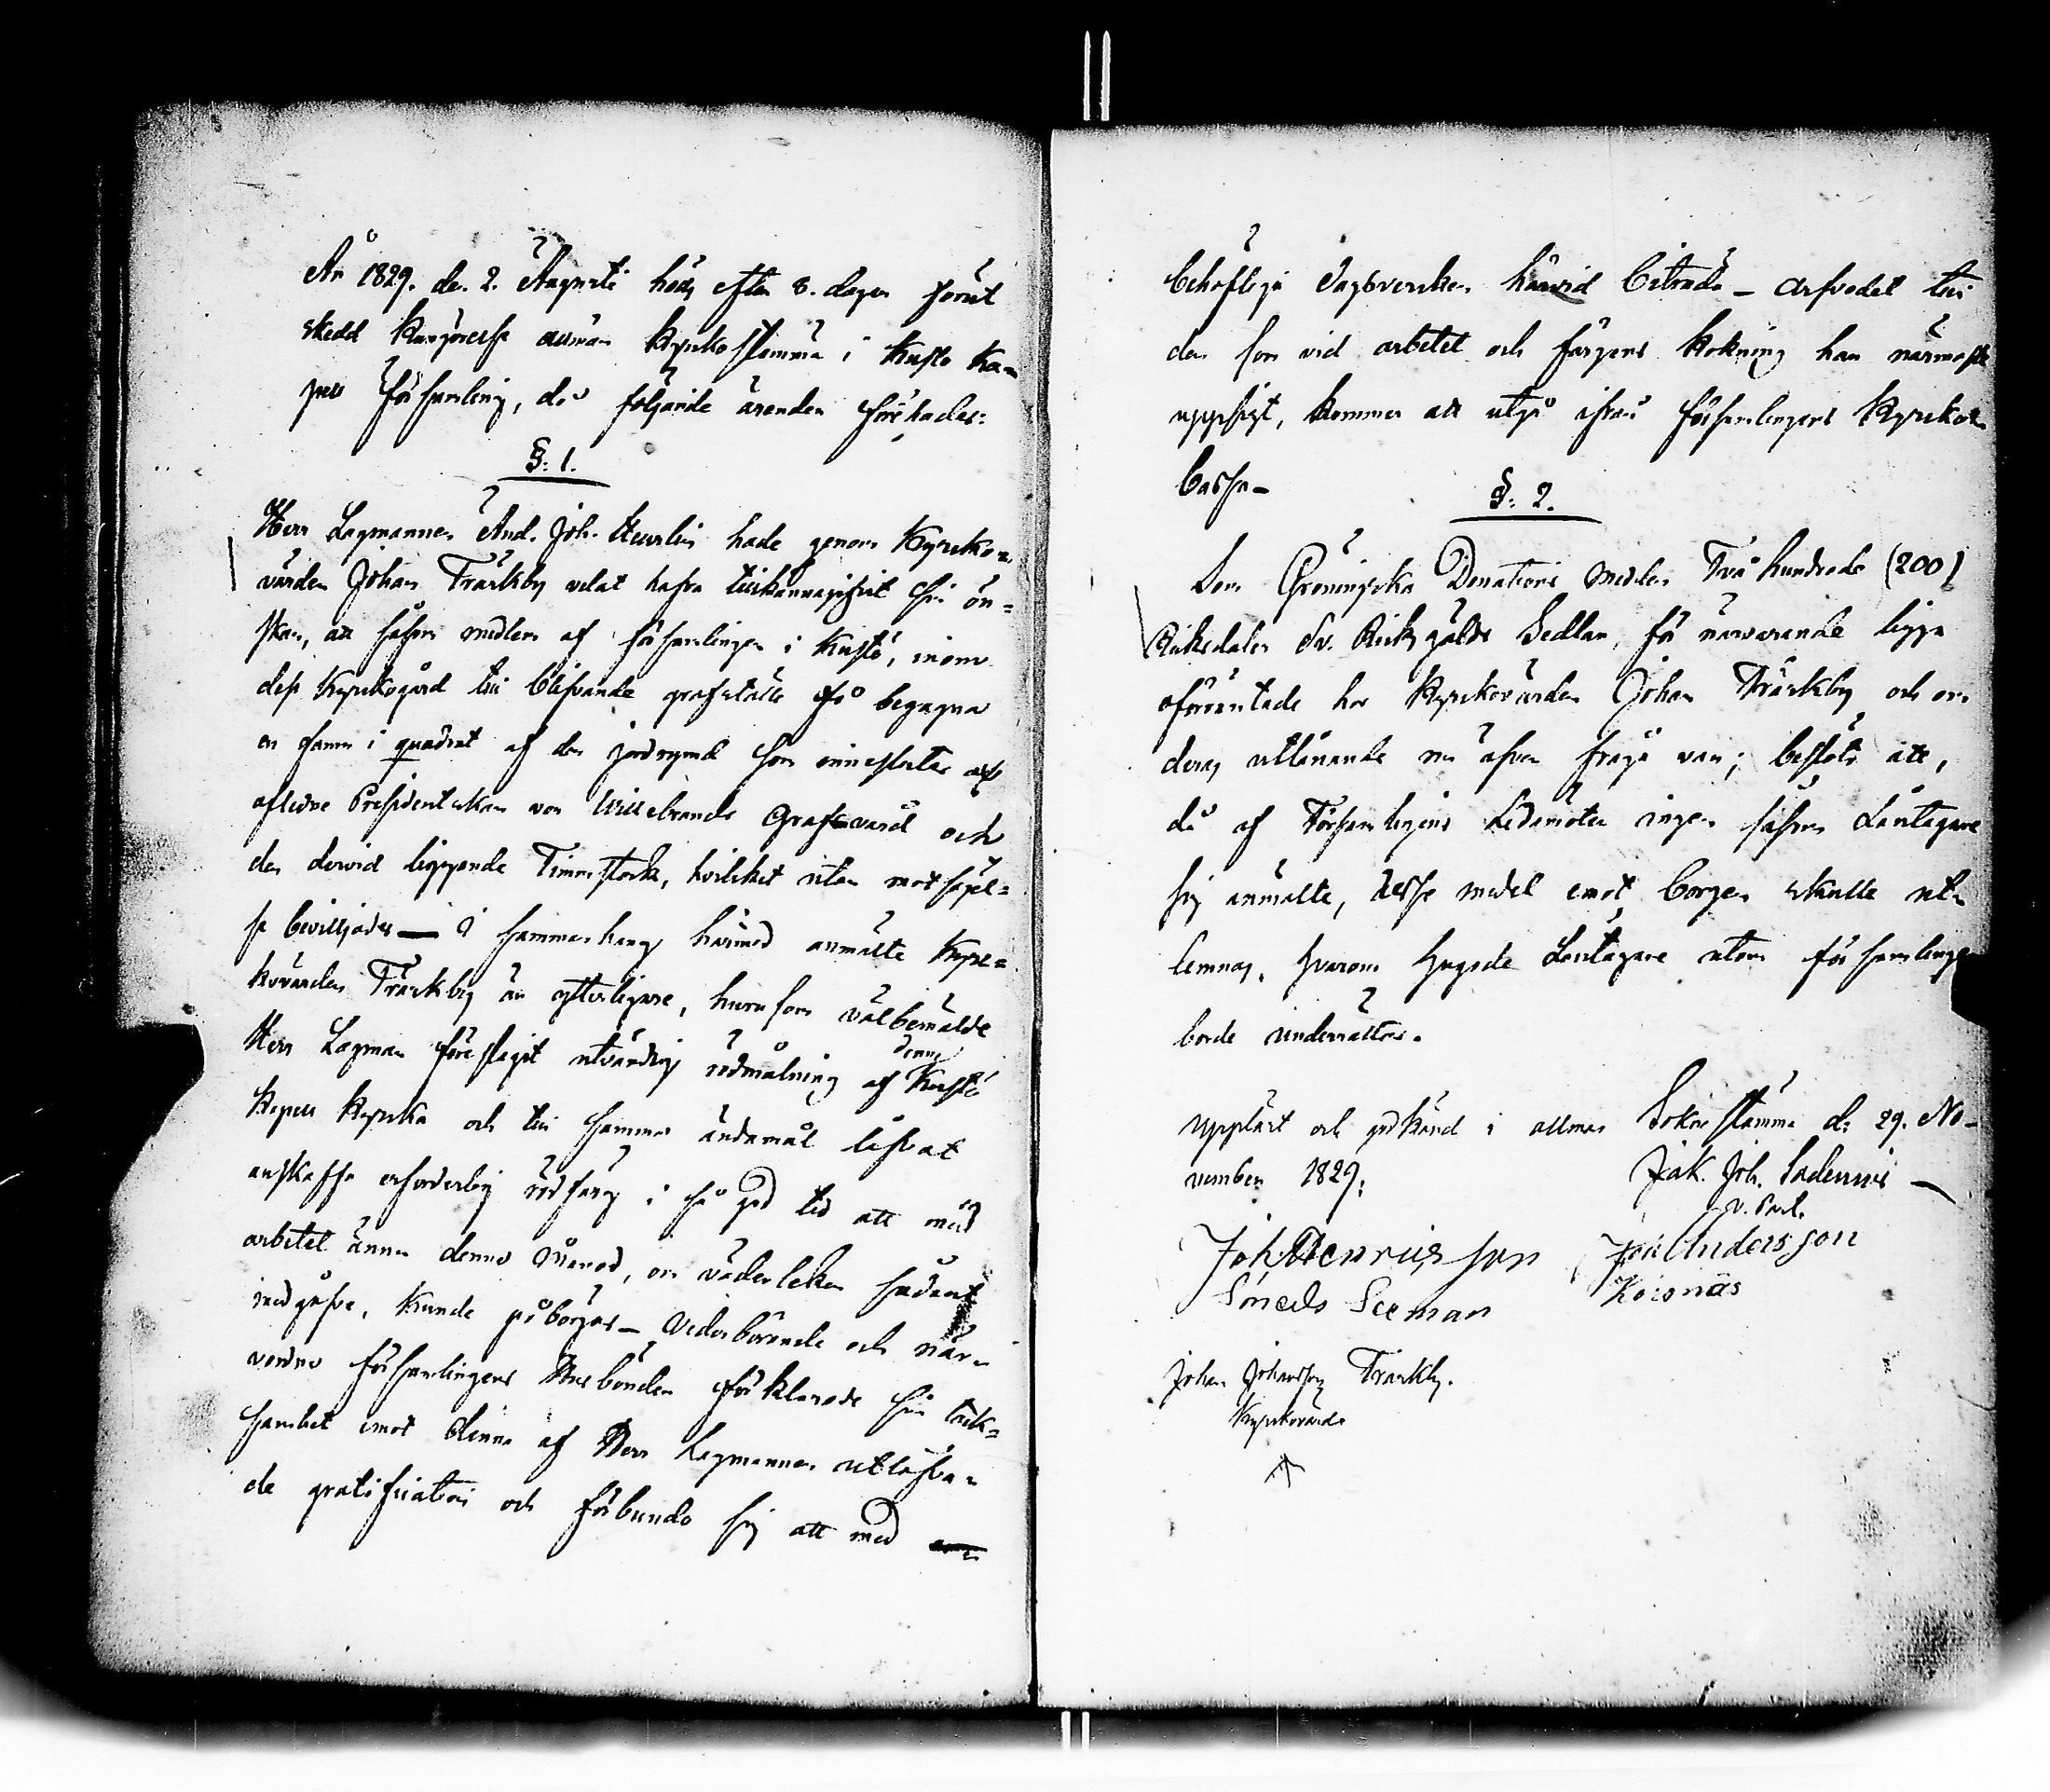 År 1829. den 2. Augusti hölls efter 8. dagar förut
skedd kungörelse allmän Kyrkostämma i Kustö Ka=
pell församling, då följande ärenden förehades:
§: 1.
Herr Lagmannen And. Joh. Heurlin hade genom Kyrko=
värden Johan Träskby velat hafva tillkännagifvit sin ön=
skan, att såsom medlem af församlingen i Kustö, inom
dess Kyrkogård till blifvande grafställe få begagna
en famn i quadrat af den jordrymd som inneslutes af
aflidne Presidentskan von Willebrands Grafvård och
den dervid liggande Timmerstock, hvilket utan motsäjel=
se beviljades — I sammanhang härmed anmälte Kyr=
kovärden Träskby än ytterligare, hurusom välbemälde
Herr Lagman föreslagit utvändig rödmålning af denna Kustö
Kapell Kyrka och till samma ändamål låfvat
anskaffa erforderlig rödfärg i så god tid att med
arbetet ännu denna Månad, om väderleken sådant
medgåfve, kunde påbörjas — Vederbörande och när=
varande församlingens Husbönder förklarade sin tack=
samhet emot denna af Herr Lagmannen utlåfva=
de gratification och förbundo sig att med
behöfliga Dagsverken härvid biträda — Arfvodet till
den som vid arbetet och färgens kokning har närmaste
uppsigt, kommer att utgå ifrån församlingens Kyrko=
cassa —
§: 2.
Som Gröningska Donations medlen Två hundrade (200)
Riksdaler Sv. Riksgälds Sedlar, för närvarande ligga
oförräntade hos Kyrkovärden Johan Träskby och om
deras utlånande nu äfven fråga var; beslöts att,
då af Församlingens Ledamöter ingen såsom Låntagare
sig anmälte, desse medel emot borgen skulle ut=
lemnas, hvarom hugade Låntagare utom församlingen
borde underrättas.
Uppläst och godkänd i allmän Sockenstämma d: 29. No=
vember 1829;
Jak. Joh. Sadenius
v. Past.
Joh Henricsson
Joh Andersson
Seeman
Koionäs
Johan Johansson Träskby.
Kyrkovärd